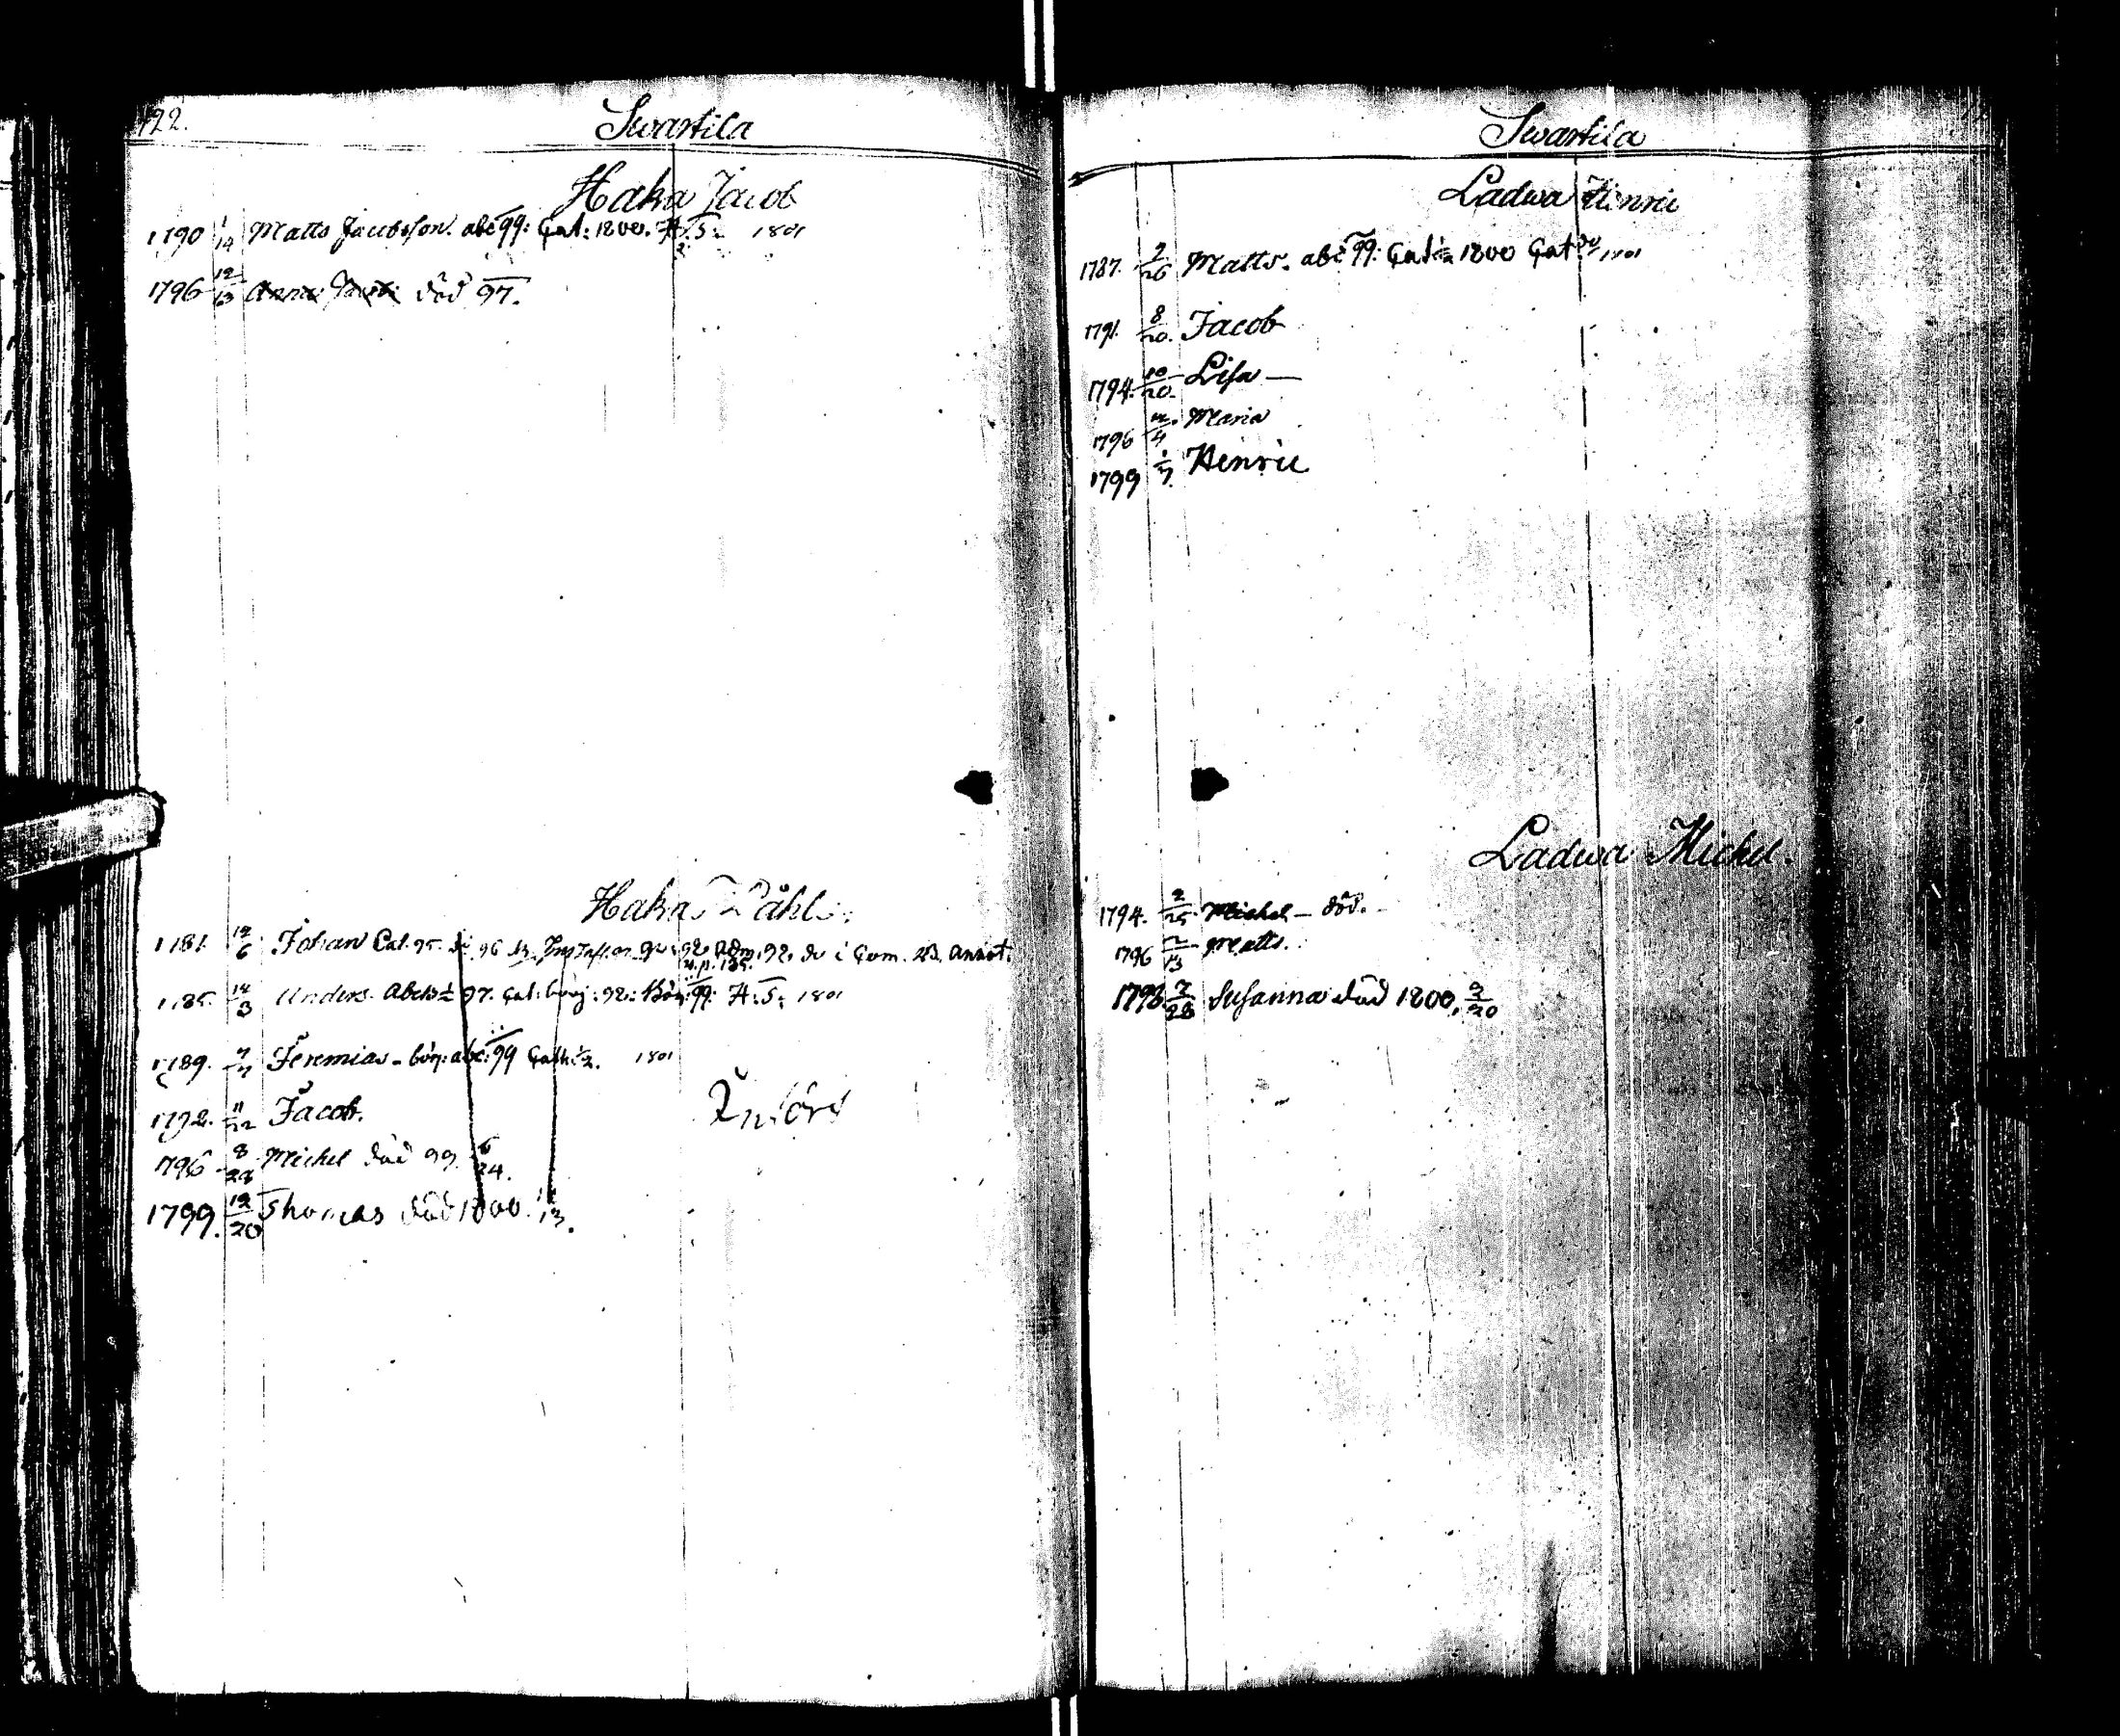 122.
Swartila
Haka Jacob
1790 1/14 Matts Jacobsson. abc 99: Cat: 1800. H. S. 1801
1796 12/13 Anna död 97.
Haka Påhl
1781. 12/6 Johan Cat. 95. 96 92. do i Com. Annot.
1785. 12/3 Anders. Abcb 97. Cat: börj: 98: Bön: 99: H: S: 1801
1789. 7/7 Jeremias - bön: abc: 99 Cath: 1/2. 1801
1792. 11/22 Jacob.
Införd
1796 8/28 Michel död 99. 5/24.
1799. 12/20 Thomas död 1800. /13.
Swartila
Ladwa Henric
1787. 2/26 Matts. abc 99: Cat: 1/2 1800 Cat: 1801
1791. 8/20. Jacob
1794. 10/20. Lisa —
1796 /4 Maria
1799 1/7. Henric
Ladwa Michel.
1794. 2/25. Michel — död. -
1796 2/13 Matts.
1798 7/28 Susanna död 1800. 2/20